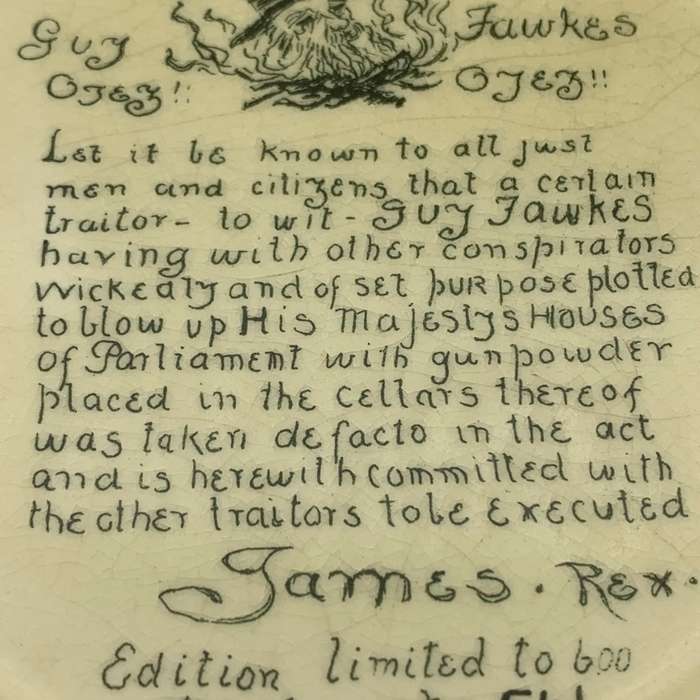 Guy Fawkes
OYEZ!! OYEZ!!
Let it be known to all just
men and citizens that a certain
traitor - to wit - GUY FAWKES
having with other conspirators
wickedly and of set purpose plotted
to blow up His Majestys Houses
of Parliament with gunpowder
placed in the cellars thereof
was taken de facto in the act
and is herewith committed with
the other traitors to be executed
James. Rex.
Edition limited to 600